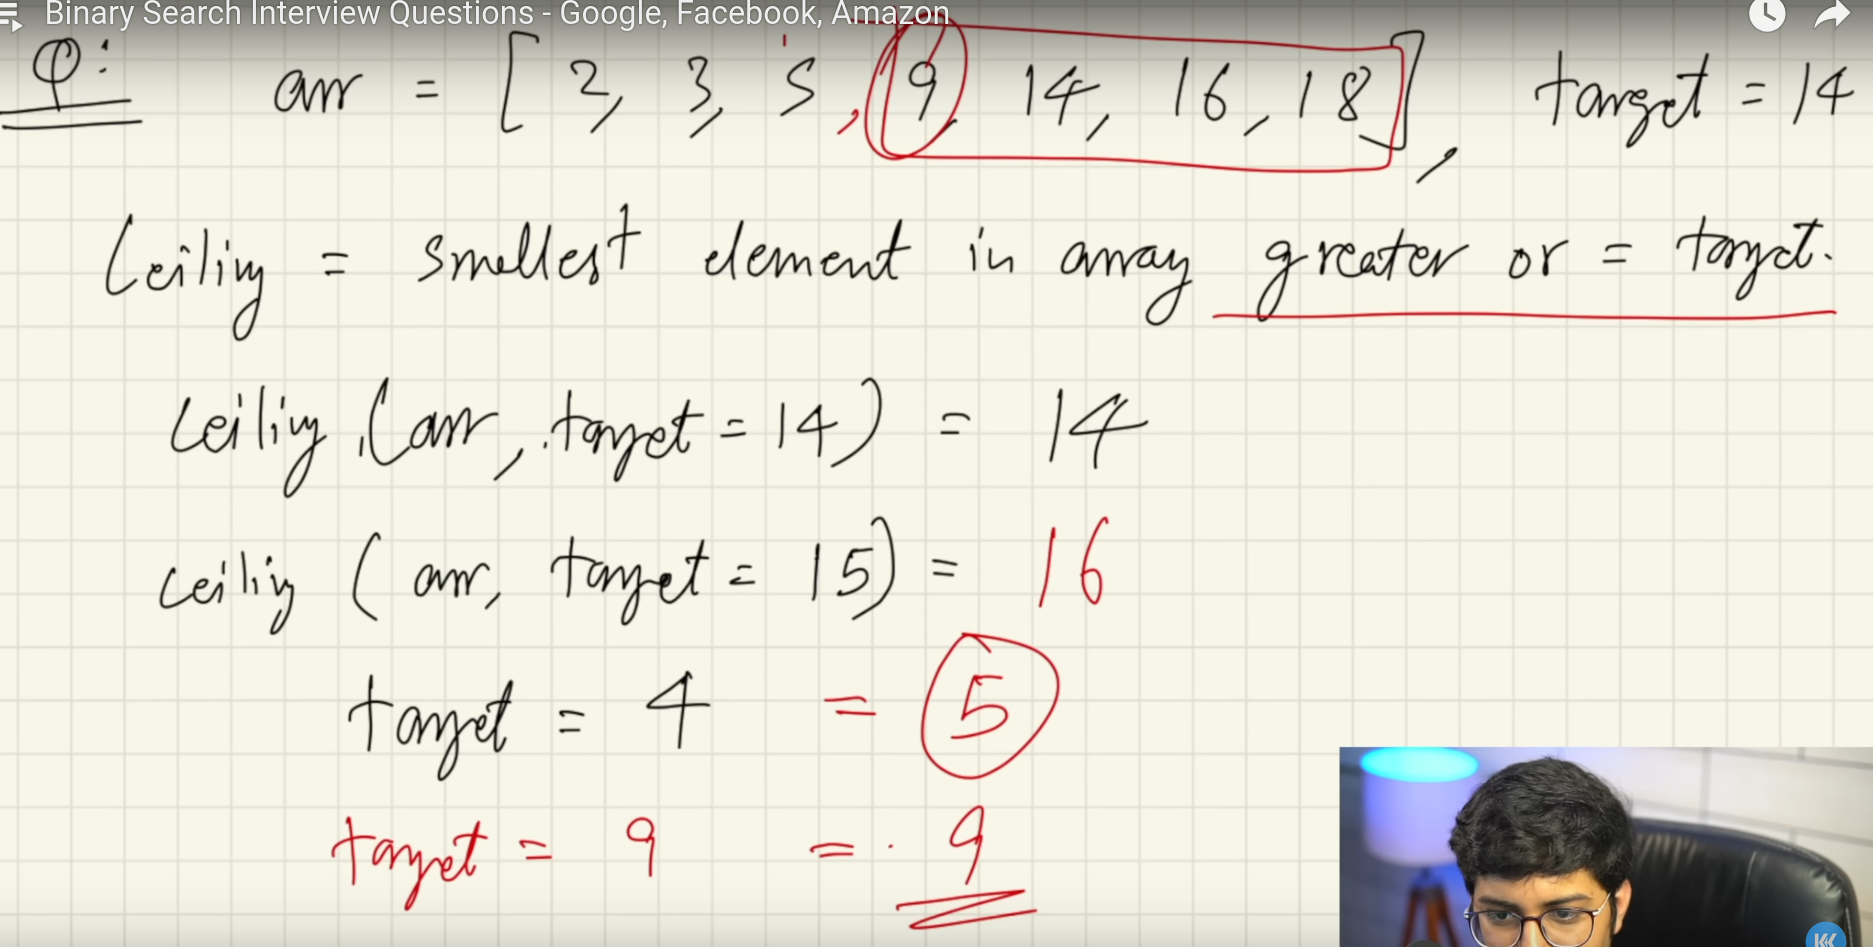 Binary Search Interview Questions - Google, Facebook, Amazon
Q: arr = [2, 3, 5, 9, 14, 16, 18], target = 14
Ceiling = smallest element in array greater or = target.
Ceiling (arr, target = 14) = 14
Ceiling (arr, target = 15) = 16
target = 4 = 5
target = 9 = 9